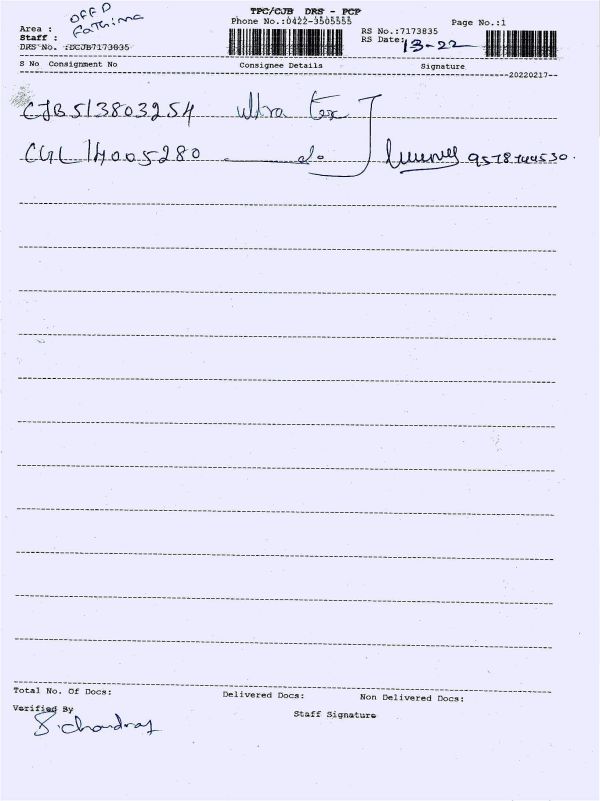 TPC/CJB DRS - PCP
Phone No.:0422-3505555
Page No.:1
Area : OFF D
Staff : Fathima
RS No.:7173835
DRS No. :DCJB7173835
RS Date: 13-22
S No Consignment No Consignee Details Signature
20220217
CJB513803254 ultra tex
CGL 14005280 do 9578744530.
Total No. Of Docs: Delivered Docs: Non Delivered Docs:
Verified By
Staff Signature
S. chandray